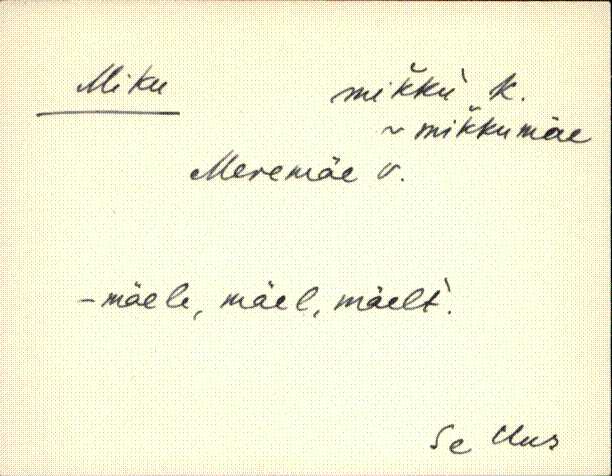 Miku mik̆kù k.
~ mik̆kumäe
Meremäe v.
-mäele, mäel, mäelt̀.
Se Uus